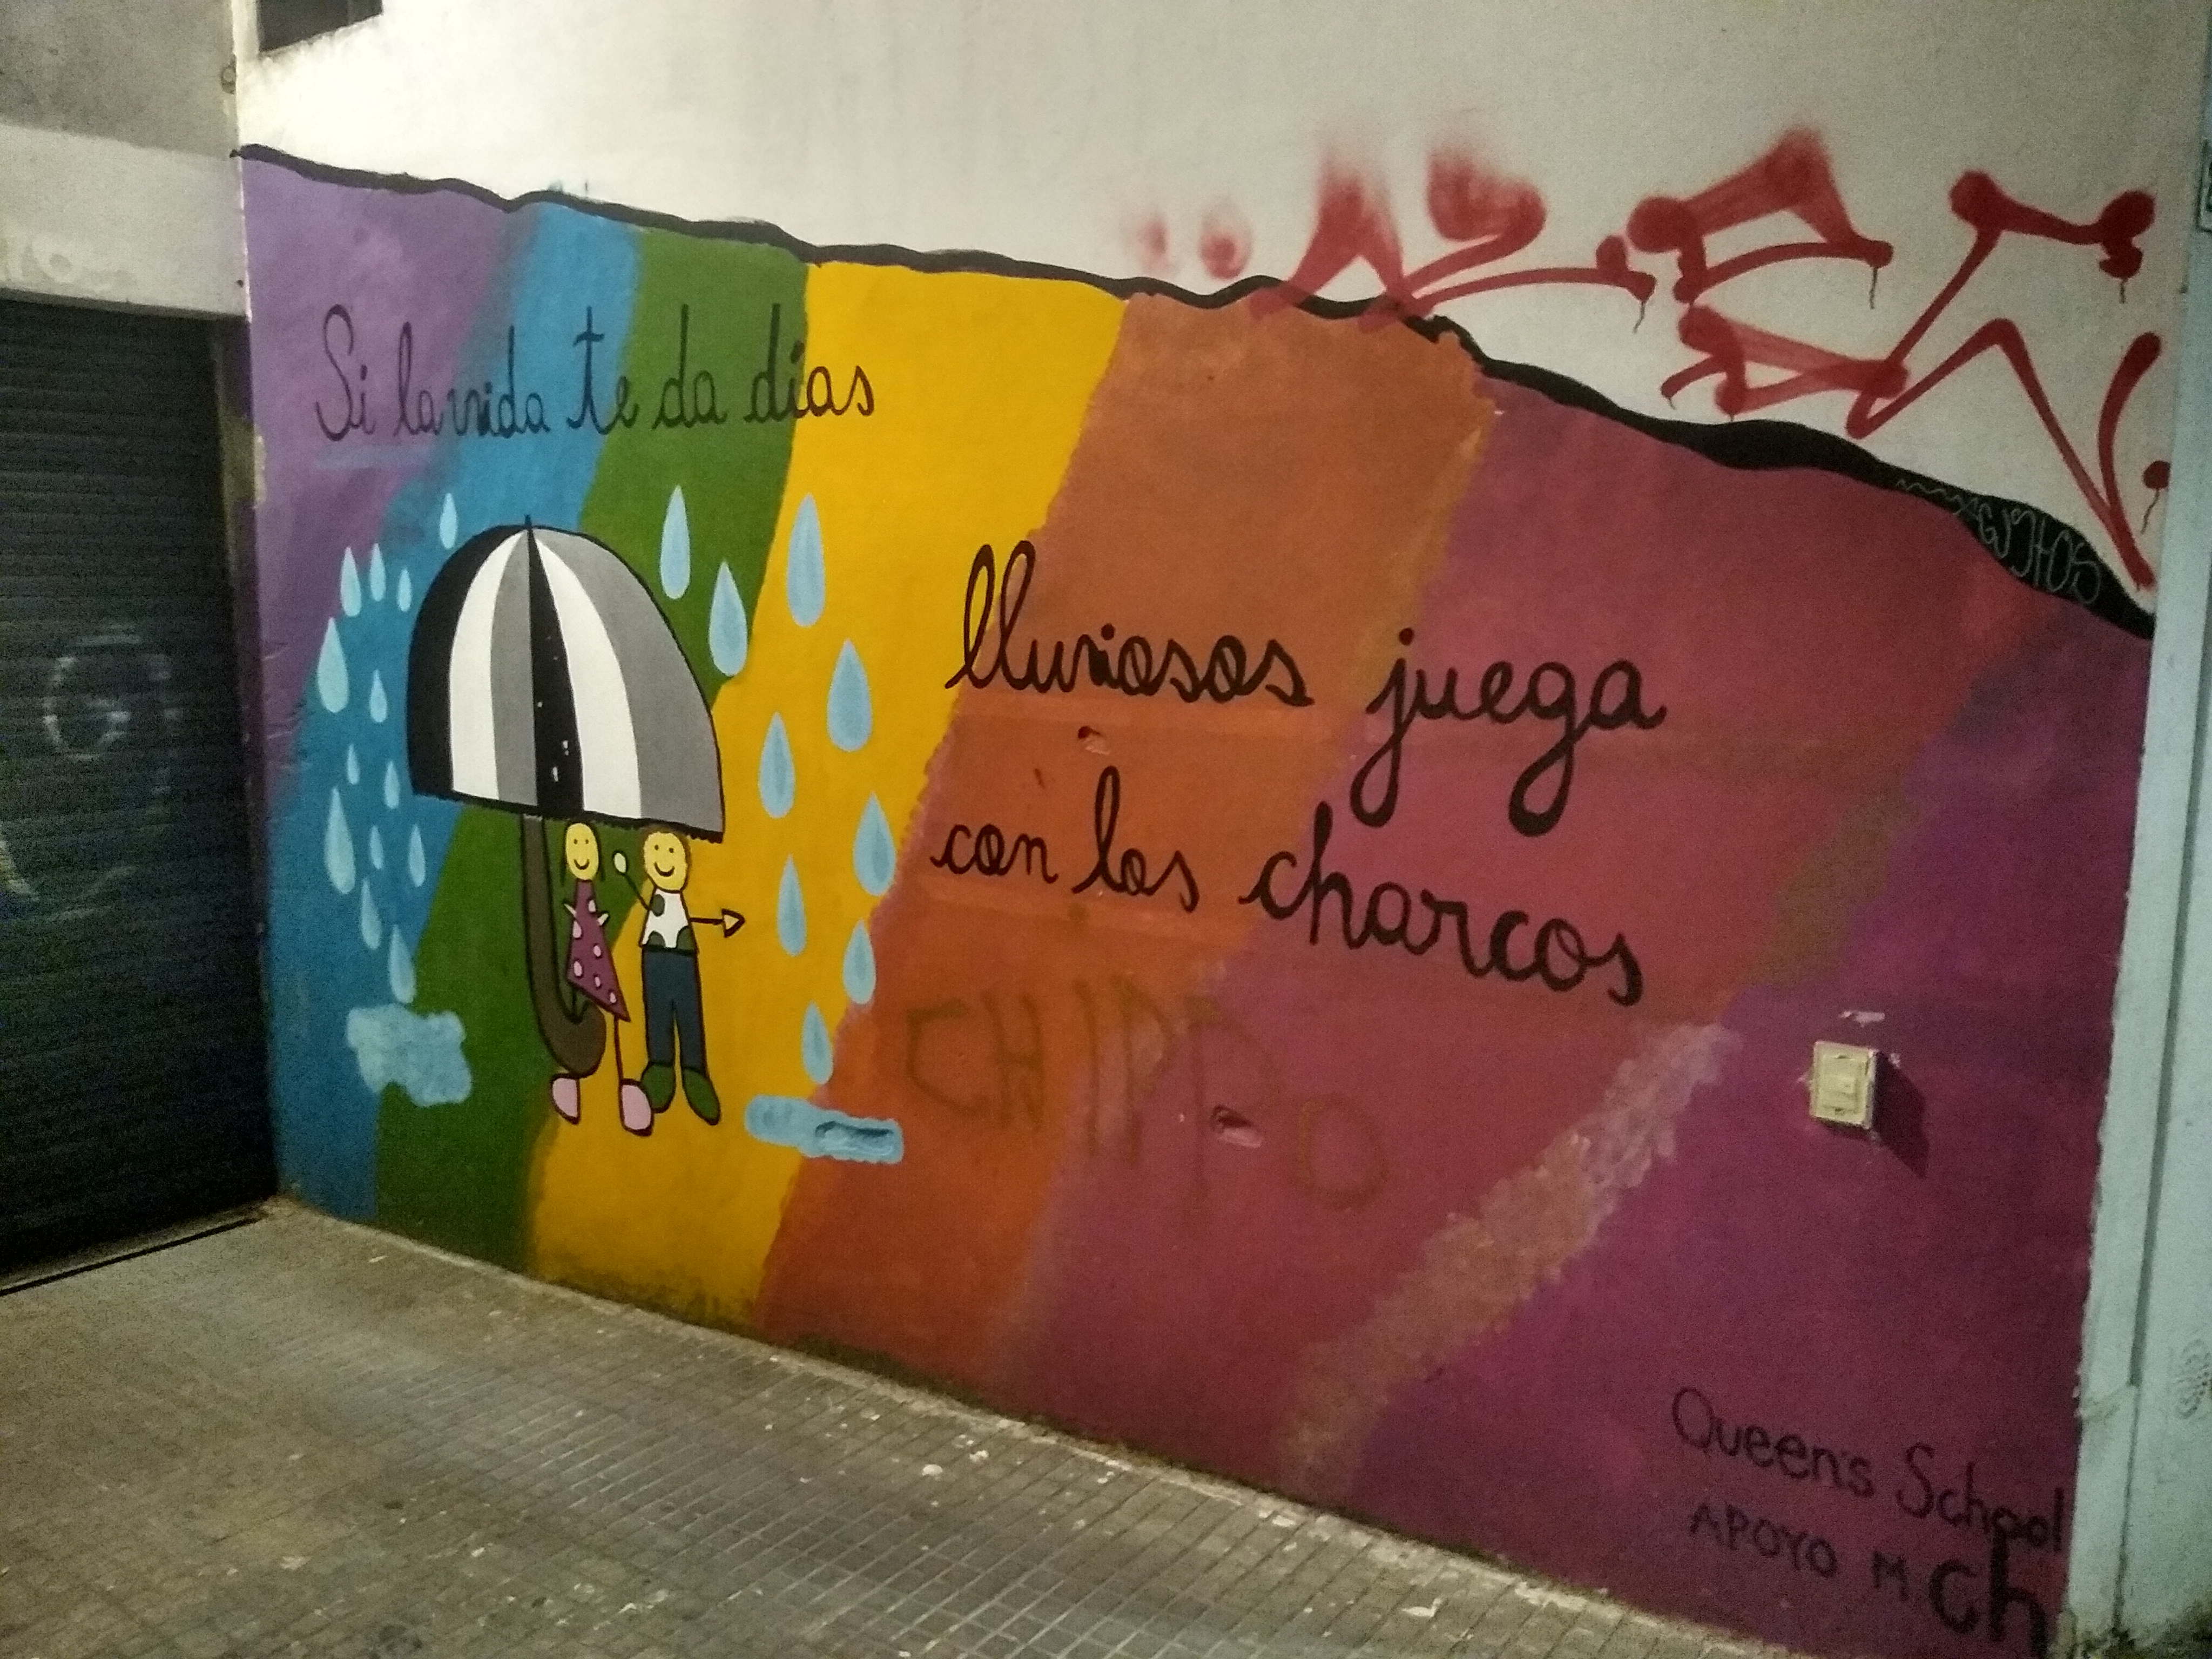 Si la vida te da días
lluviosos juega
con los charcos
CHIPPO
Queen's School
APOYO M
ch